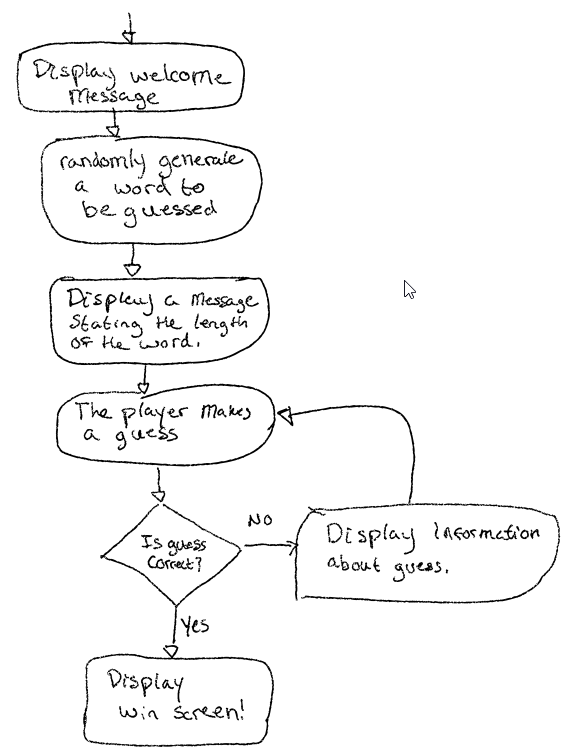 Display welcome
Message
randomly generate
a word to
be guessed
Display a Message
Stating the length
of the word.
The player Makes
a guess
Is guess
Correct?
NO
Display information
about guess.
Yes
Display
win screen!